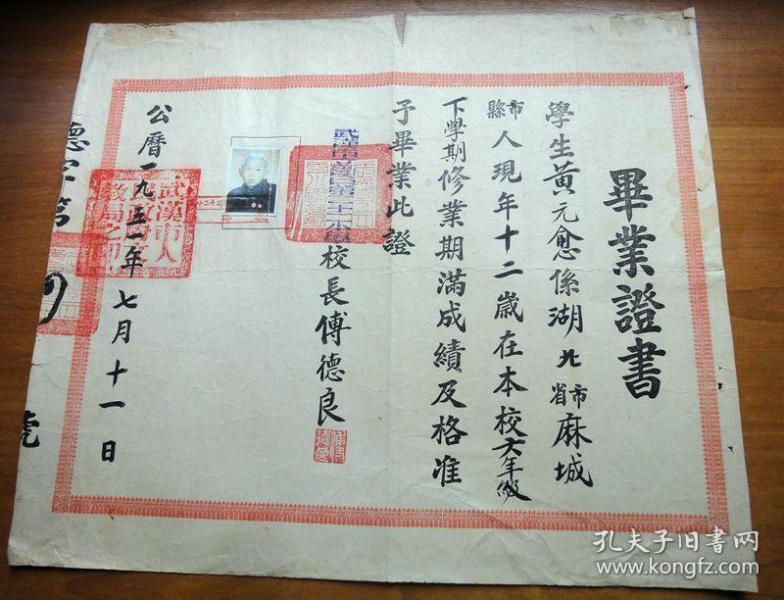 畢業證書
學生黃元愈係湖北省市麻城
縣市人現年十二歲在本校六年級
下學期修業期滿成績及格准
予畢業此證
校長傅德良
公曆一九五一年七月十一日
武漢市人
德字第
號
孔夫子旧书网